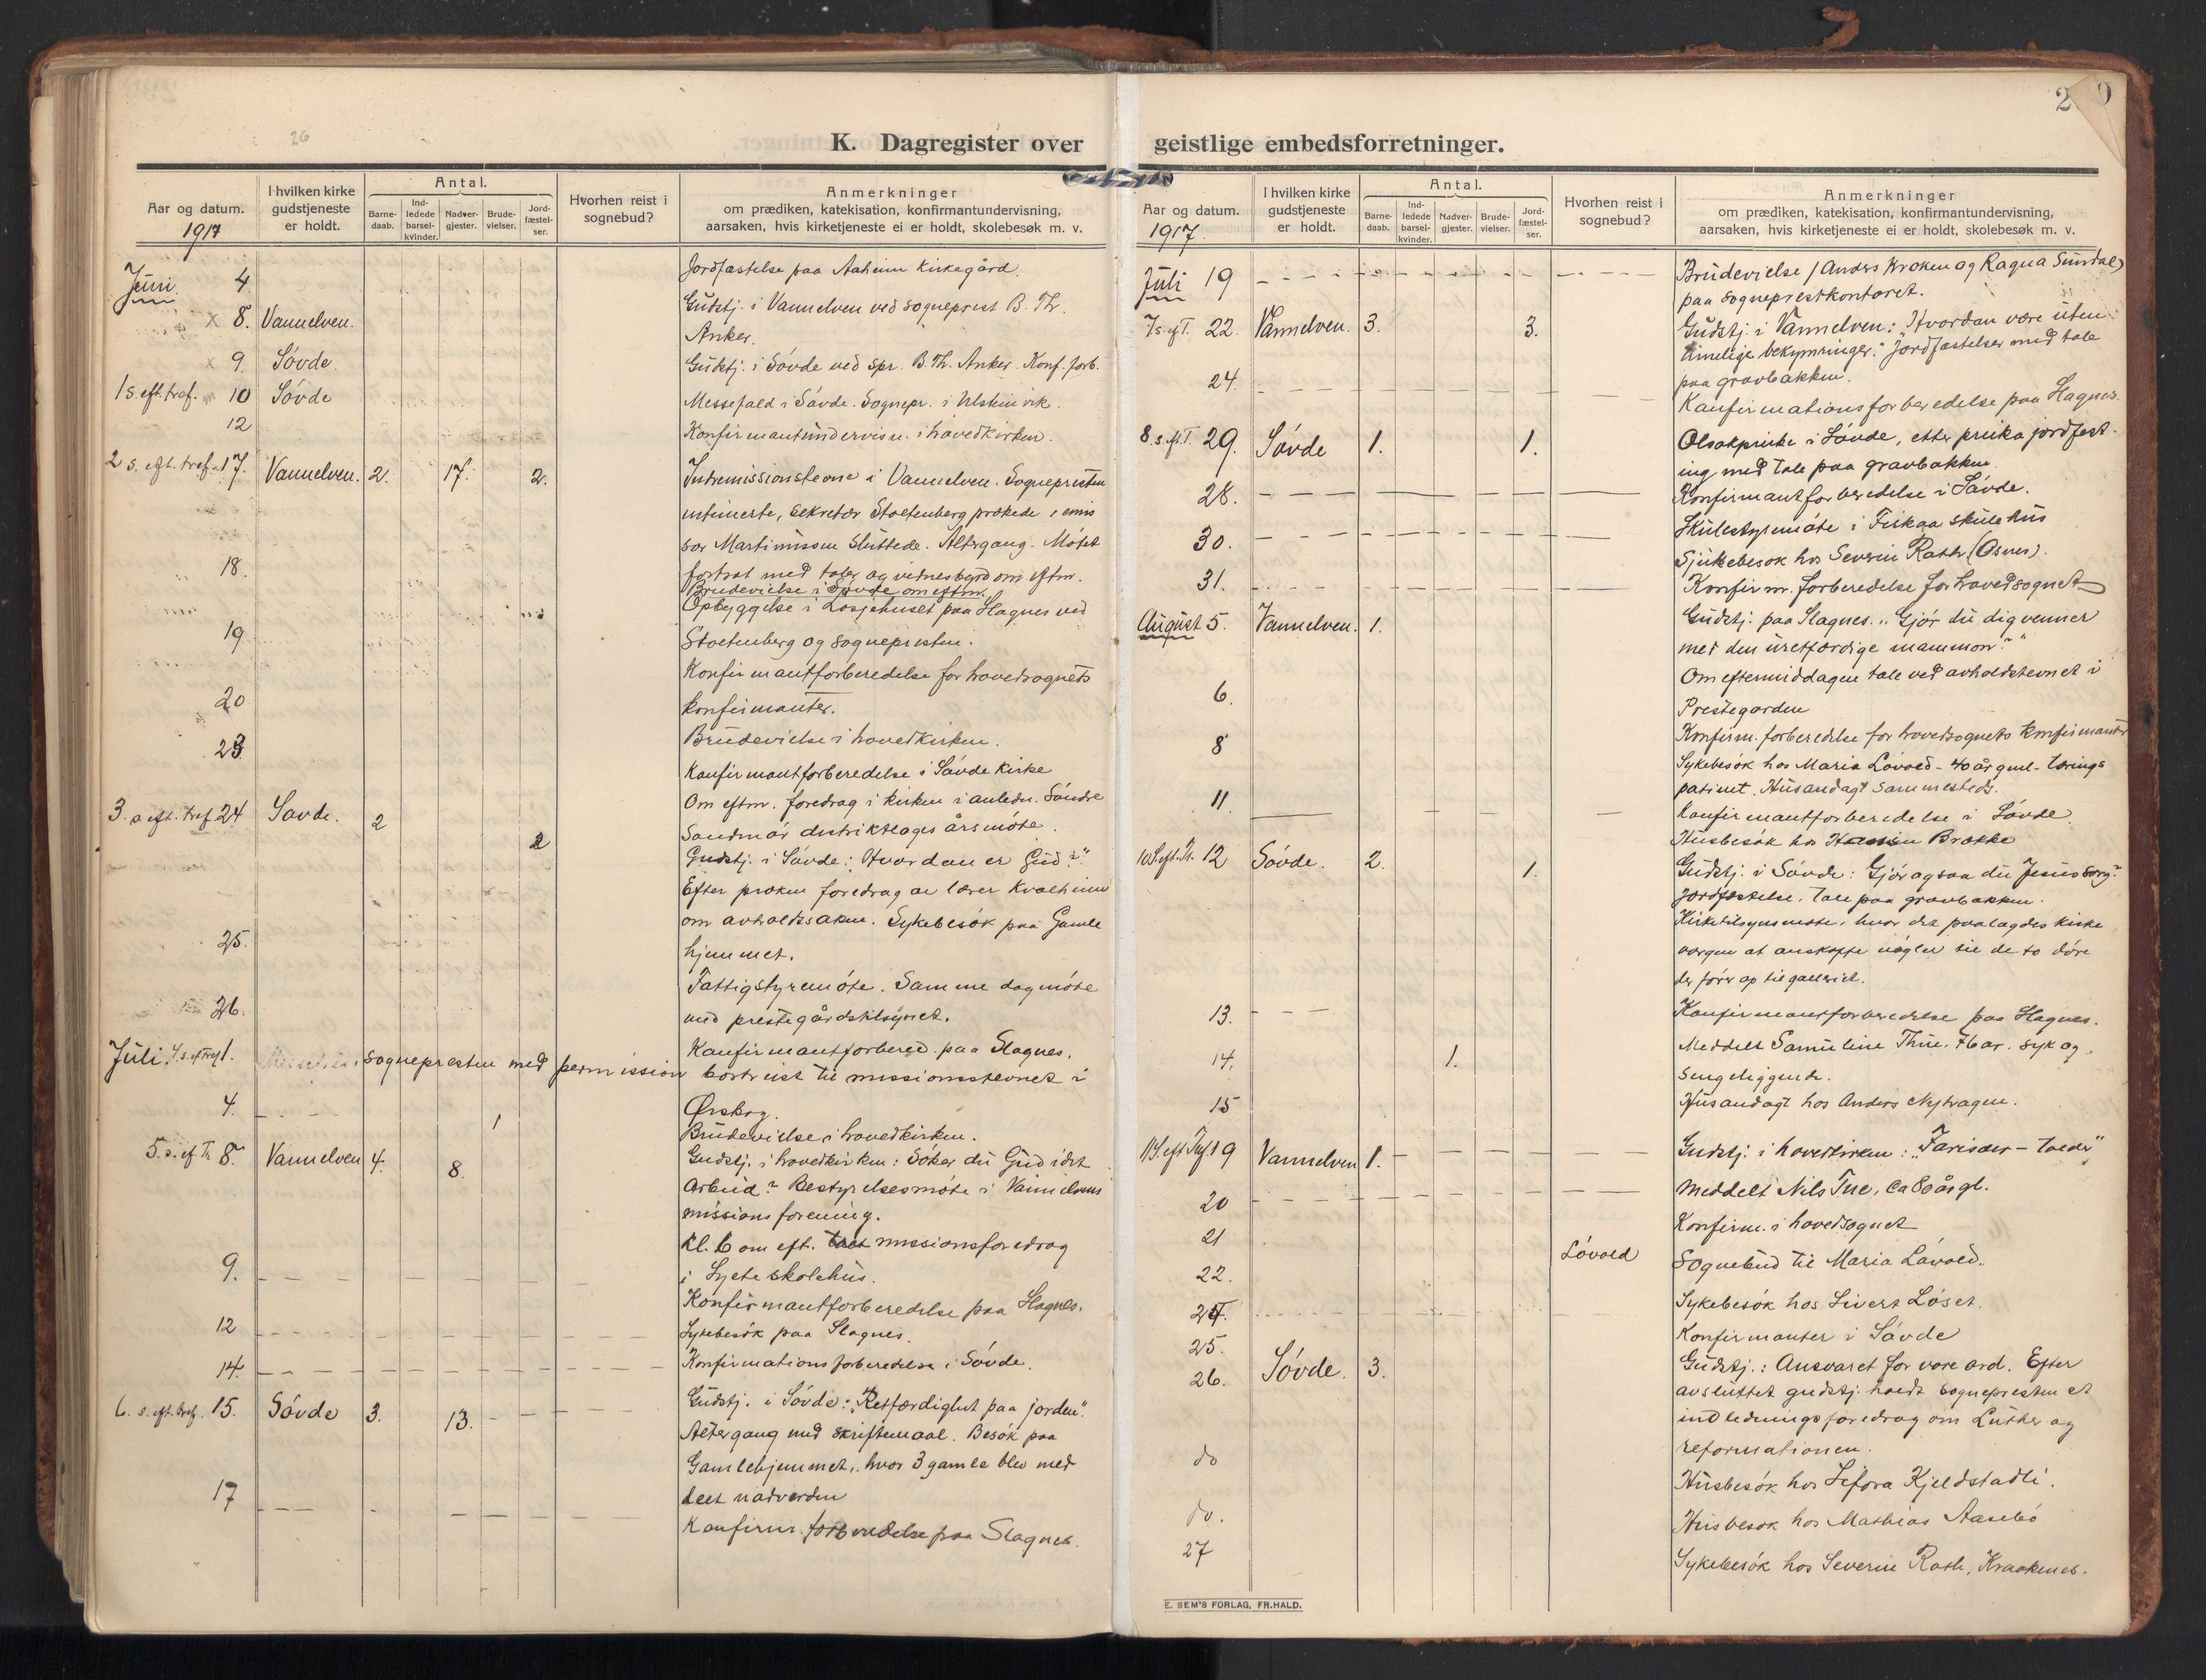 26
K. Dagregister over
Aar og datum.
1917
I hvilken kirke gudstjeneste er holdt.
Antal.
Barne-daab.
Ind-ledede barsel-kvinder.
Nadver-gjester.
Brude-vielser.
Jord-fæstel-ser.
Hvorhen reist i sognebud?
Anmerkninger
om prædiken, katekisation, konfirmantundervisning,
aarsaken, hvis kirketjeneste ei er holdt, skolebesøk m. v.
Juni 4. Jordfæstelse paa Aaheim Kirkegård.
x 8. Vannelven. Gudstj. i Vannelven ved sogneprest B. Th.
Anker.
x 9. Søvde. Gudstj. i Søvde ved spr. B. Th. Anker. Konf. forb.
1 s. eft. tref. 10 Søvde Messefald i Søvde. Sognepr. i Ulsteinvik.
12 Konfirmantundervisn. i hovedkirken.
2 s. eft. tref. 17. Vannelven. 2. 17. 2. Indremissionstevne i Vannelven. Sognepresten
intimerte, sekretær Stoltenberg prækede, emis
sær Martinussen sluttede. Altergang. Møtet
fortsat med taler og vidnesbyrd om eftm.
Brudevielse i Søvde om eftm.
18. Opbyggelse i Losjehuset paa Slagnes ved
Stoltenberg og sognepresten.
19 Konfirmantforberedelse for hovedsognets
konfirmanter.
20 Brudevielse i hovedkirken.
23. Konfirmantforberedelse i Søvde Kirke
Om eftm. foredrag i kirken i anledn. Søndre
Søndmør distriktlages årsmøte.
3. s. eft. tref. 24 Søvde. 2 2 Gudstj. i Søvde: "Hvordan er Gud?"
Efter præken foredrag av lærer Kvalheim
om avholdssaken. Sykebesøk paa Gamle
hjemmet.
25. Fattigstyremøte. Samme dag møte
med prestegårdstilsynet.
26. Konfirmantforbered. paa Slagnes.
Juli 4. s. eft. tref. 1. sognepresten med permission bortreist til missionsstevnet i
Ørskog.
4. 1 Brudevielse i hovedkirken.
5. s. ef Tr. 8. Vannelven 4. 8. Gudstj. i hovedkirken: Søker du Gud i dit
Arbeid? Bestyrelsesmøte i Vannelvens
missionsforening.
Kl. 6 om eft. missionsforedrag
i Sylte skolehus.
9. Konfirmantforberedelse paa Slagnes.
12 Sykebesøk paa Slagnes.
14. Konfirmationsforberedelse i Søvde.
6. s. eft. tref. 15. Søvde 3. 13. Gudstj. i Søvde: "Retfærdighet paa jorden".
Altergang med skriftemaal. Besøk paa
Gamlehjemmet, hvor 3 gamle blev med
delt nadverden
17 Konfirm. forberedelse paa Slagnes.
geistlige embedsforretninger.
Aar og datum.
1917.
I hvilken kirke gudstjeneste er holdt.
Antal.
Barne-daab.
Ind-ledede barsel-kvinder.
Nadver-gjester.
Brude-vielser.
Jord-fæstel-ser.
Hvorhen reist i sognebud?
Anmerkninger
om prædiken, katekisation, konfirmantundervisning,
aarsaken, hvis kirketjeneste ei er holdt, skolebesøk m. v.
Juli 19 Brudevielse (Anders Kroken og Ragna Sundal)
paa sogneprestkontoret.
7 s. ef T. 22. Vannelven. 3. 3. Gudstj. i Vannelven: "Hvordan være uten
timelige bekymringer." Jordfæstelser med tale
paa gravbakken.
24. Konfirmationsforberedelse paa Slagnes.
8. s. eft. T. 29. Søvde 1. 1. Olsokpreike i Søvde, etter preika jordfest-
ing med tale paa gravbakken.
28. Konfirmantforberedelse i Søvde.
30. Skulestyremøte i Fiskaa skulehus
Sjukebesøk hos Severin Rath (Osnes).
31. Konfirm. forberedelse for hovedsognet
August 5. Vannelven. 1. Gudstj. paa Slagnes. "Gjør du dig venner
med den uretfærdige mammon?"
Om eftermiddagen tale ved avholdstevnet i
Prestegarden
6. Konfirm. forberedelse for hovedsognets konfirmanter
8 Sykebesøk hos Maria Løvold - 40 år gml - tærings
patient. Husandagt sammesteds.
11. Konfirmantforberedelse i Søvde.
Husbesøk hos Brække
10 S. eft. Tr. 12 Søvde. 2. 1. Gudstj. i Søvde: Gjør ogsaa du Jesus sorg?
Jordfæstelse. Tale paa gravbakken.
Kirketilsynsmøte, hvor det paalagdes kirke
vergen at anskaffe nøgler til de to døre
der fører op til galleriet.
13. Konfirmantforberedelse paa Slagnes.
14. 1. Meddelt Samuline Thue, 76 ar. syk og
sengeliggende.
15 Husandagt hos Anders Nyhagen.
11 S. eft Tref. 19 Vannelven 1. Gudstj. i hovedkirken: "Farisæer - tolder"
20 Meddelt Nils Tue, ca 80 år gl.
21 Konfirm. i hovedsognet
22. Løvold Sognebud til Maria Løvold.
24. Sykebesøk hos Sivert Løset.
25. Konfirmanter i Søvde
26. Søvde. 3. Gudstj.: Ansvaret for vore ord. Efter
avsluttet gudstj. holdt sognepresten et
indledningsforedrag om Luther og
reformationen.
do Husbesøk hos Sefora Kjeldstadli.
do. Husbesøk hos Mathias Aasebø
27 Sykebesøk hos Severin Rath, Kraakenes.
E. SEM'S FORLAG, FR.HALD.